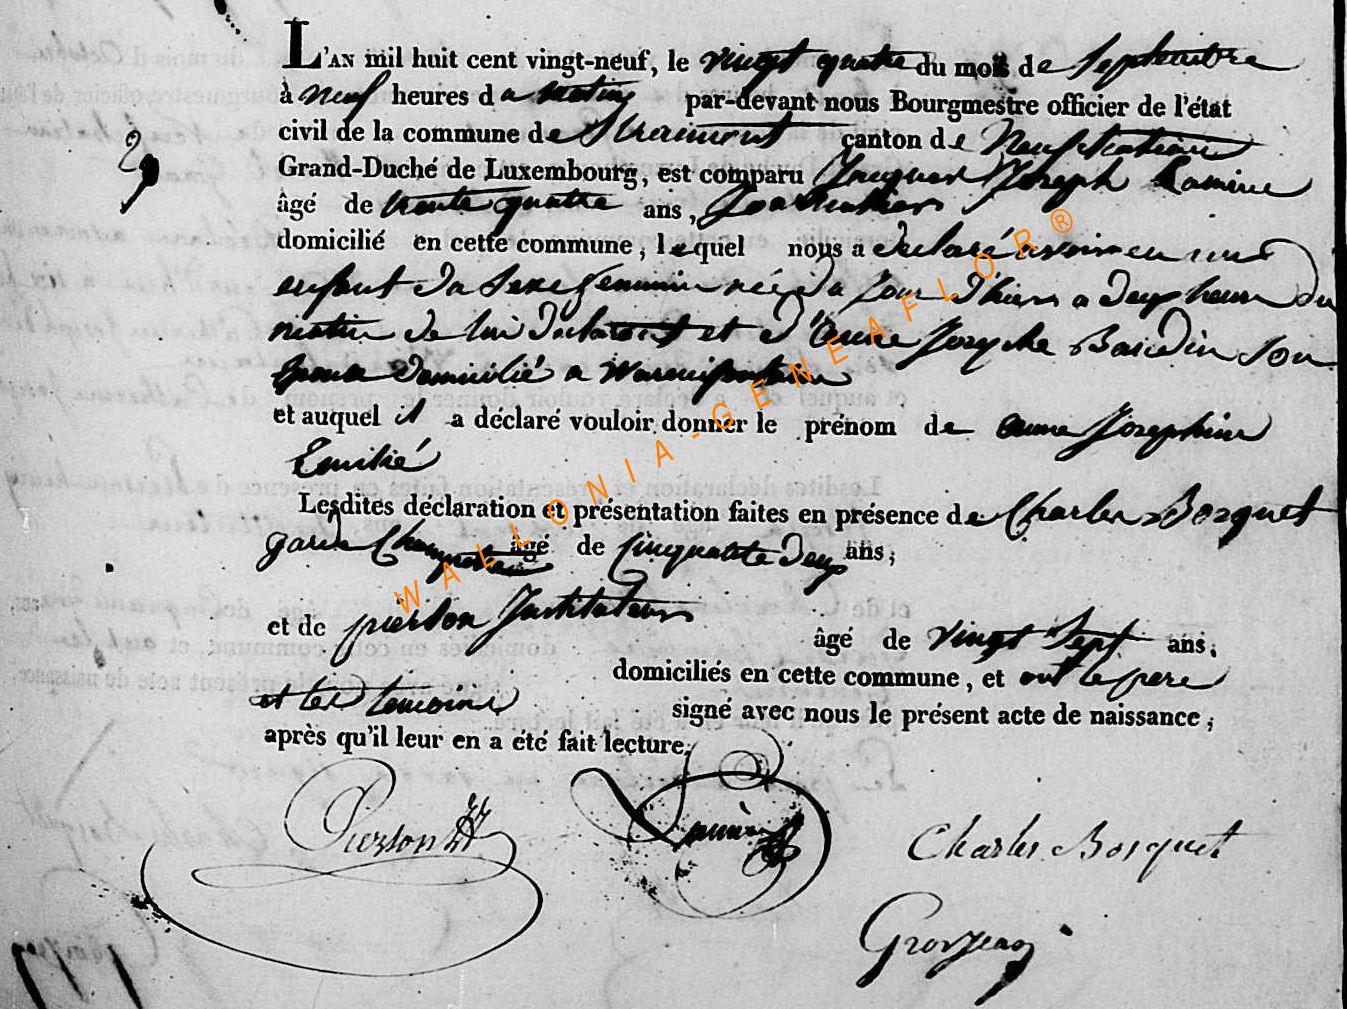 L'AN mil huit cent vingt-neuf, le vingt quatre du mois de Septembre
à neuf heures du matin par-devant nous Bourgmestre officier de l'état
civil de la commune de Straimont canton de Neufchateau
Grand-Duché de Luxembourg, est comparu Jacques Joseph Lamine
âgé de trente quatre ans,
domicilié en cette commune, lequel nous a declaré avoir eu une
enfant du Sexe feminin née du jour d'hier a deux heure du
matin de lui declarant et d'anne Josephe Baudin Son
epouse domicilié a Warmifontaine
et auquel il a déclaré vouloir donner le prénom de anne Josephine
Emilié
Lesdites déclaration et présentation faites en présence de Charles Bosquet
garde Champetre âgé de cinquante deux ans,
et de pierlon Instituteur âgé de vingt Sept ans,
domiciliés en cette commune, et ont le pere
et les temoins signé avec nous le présent acte de naissance,
après qu'il leur en a été fait lecture.
Pierlon Lamine Charles Bosquet
Grosjean
WALLONIA-GENEAFLOR®